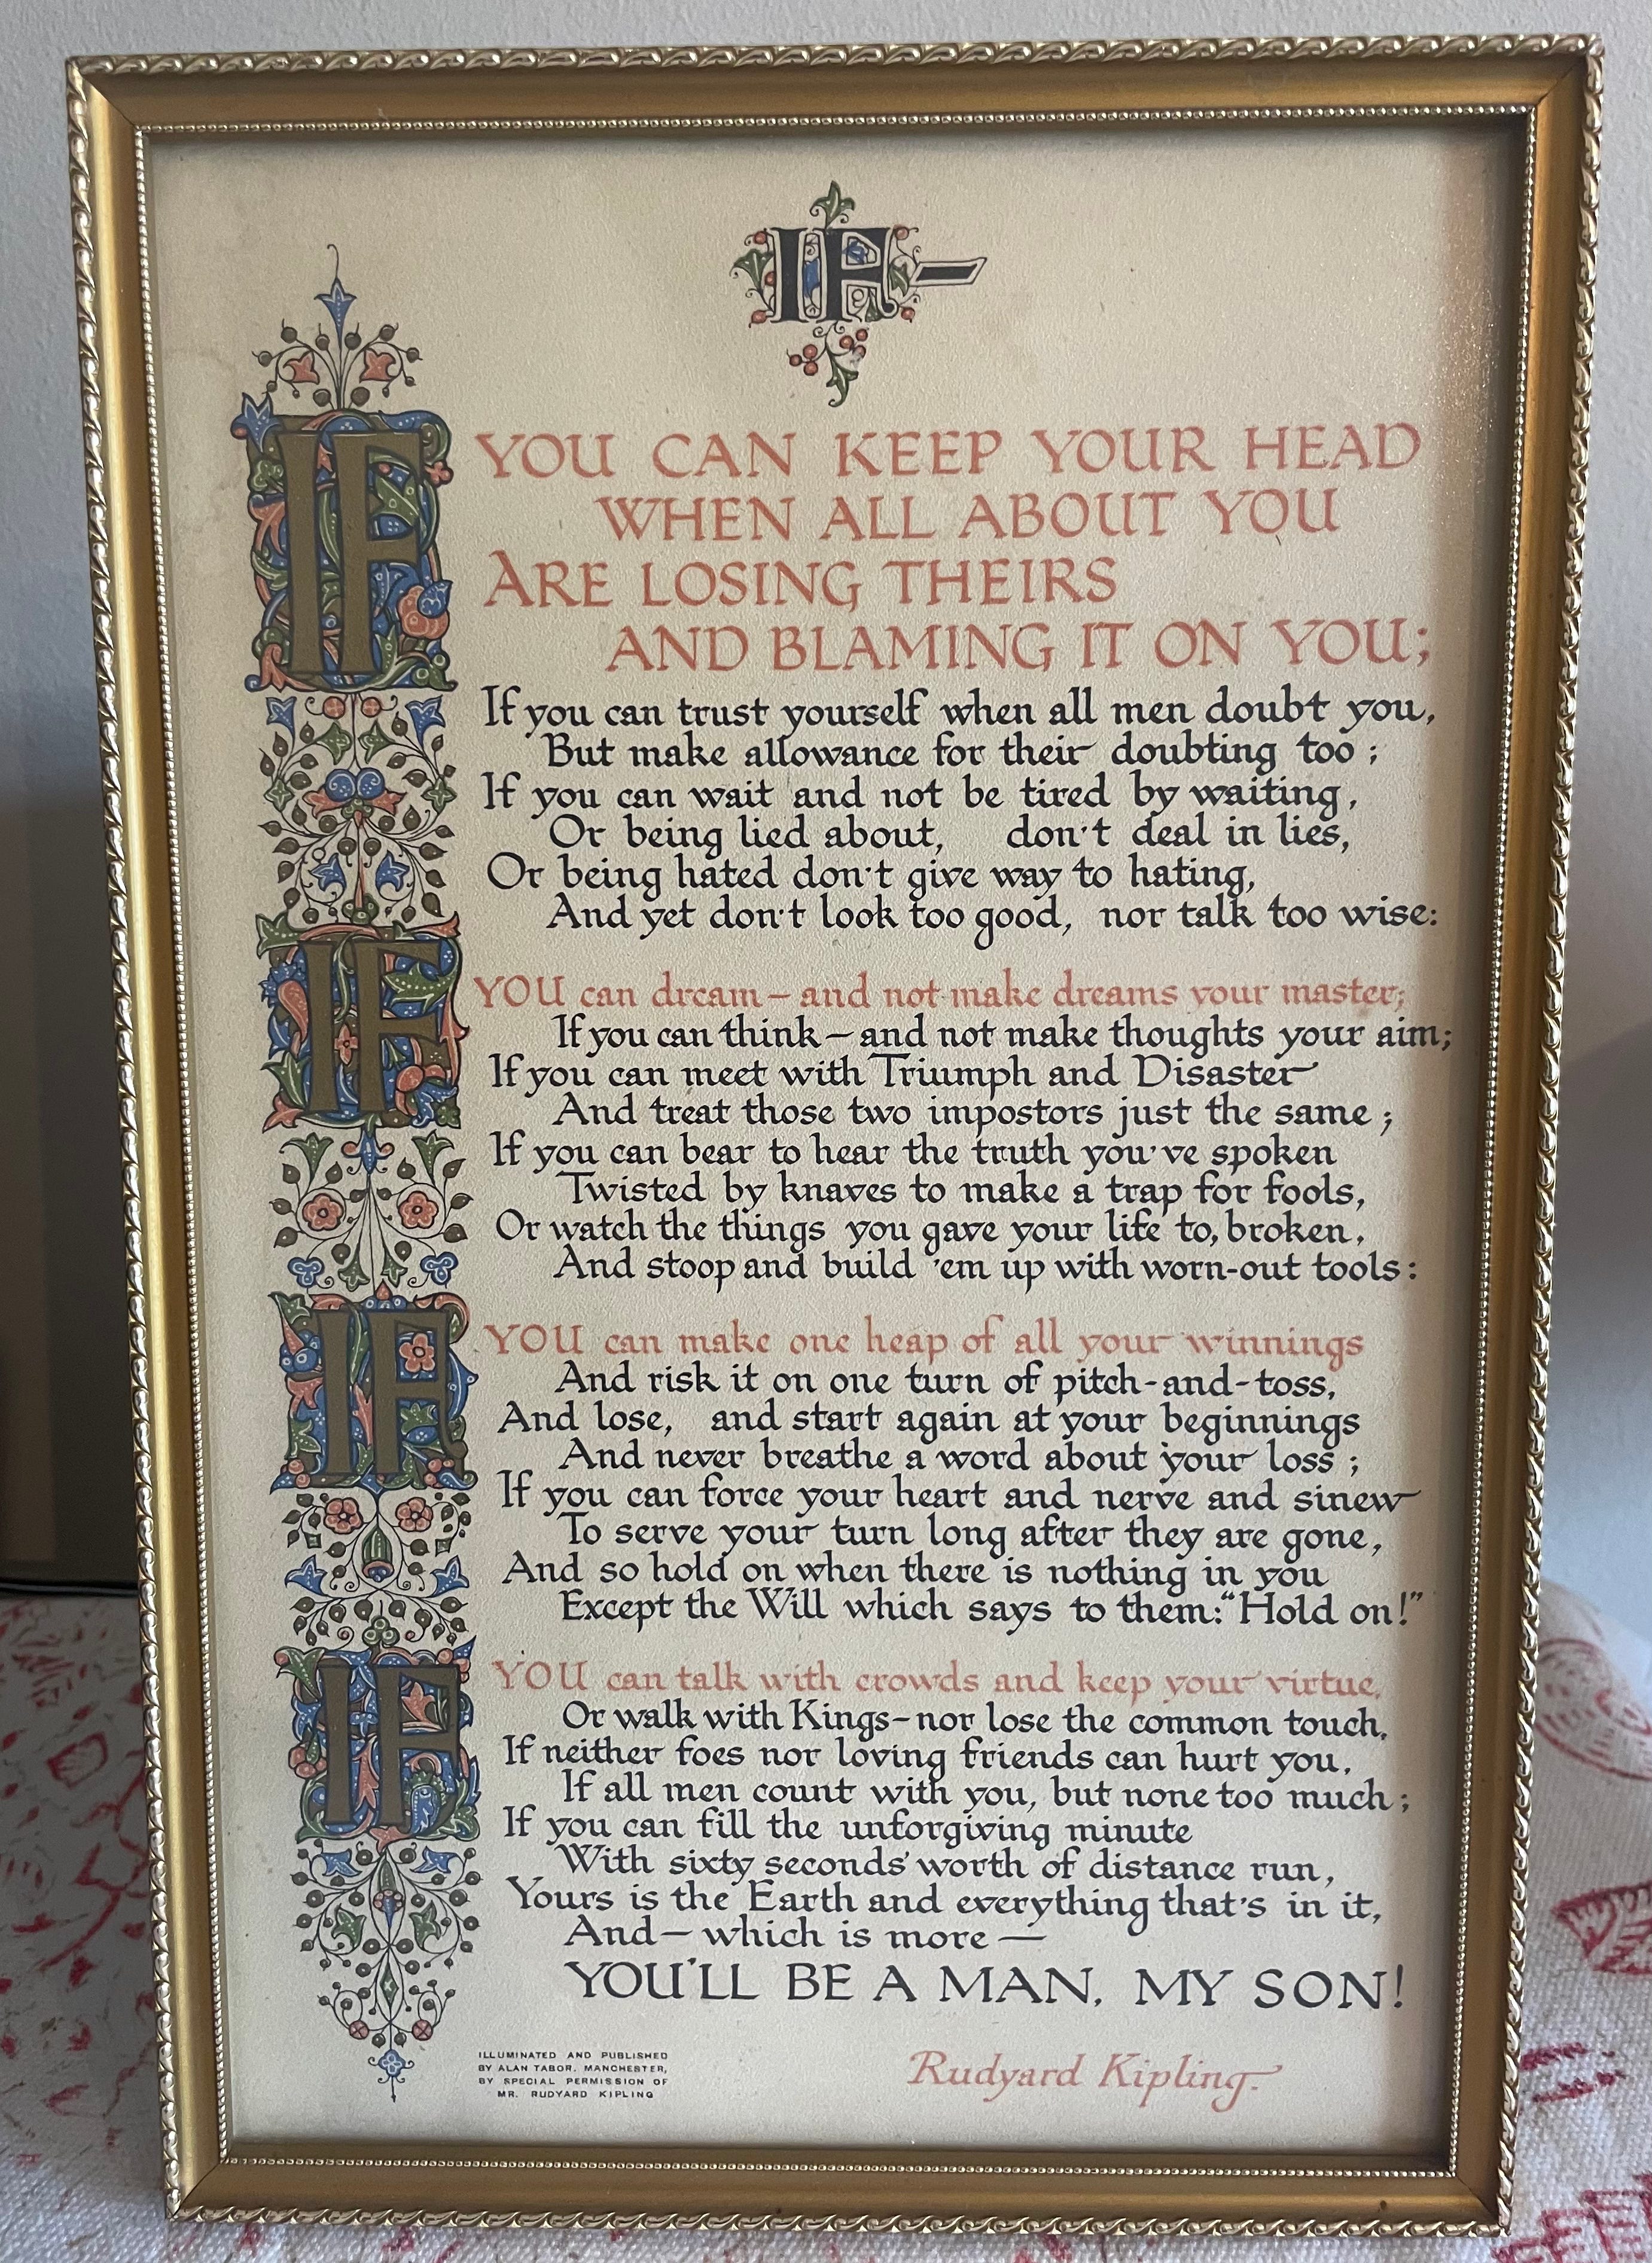 IF-
IF YOU CAN KEEP YOUR HEAD
WHEN ALL ABOUT YOU
ARE LOSING THEIRS
AND BLAMING IT ON YOU;
If you can trust yourself when all men doubt you,
But make allowance for their doubting too;
If you can wait and not be tired by waiting,
Or being lied about, don't deal in lies,
Or being hated don't give way to hating,
And yet don't look too good, nor talk too wise:
IF YOU can dream - and not make dreams your master;
If you can think - and not make thoughts your aim;
If you can meet with Triumph and Disaster
And treat those two impostors just the same;
If you can bear to hear the truth you've spoken
Twisted by knaves to make a trap for fools,
Or watch the things you gave your life to, broken,
And stoop and build 'em up with worn-out tools:
IF YOU can make one heap of all your winnings
And risk it on one turn of pitch-and-toss,
And lose, and start again at your beginnings
And never breathe a word about your loss;
If you can force your heart and nerve and sinew
To serve your turn long after they are gone,
And so hold on when there is nothing in you
Except the Will which says to them: "Hold on!"
IF YOU can talk with crowds and keep your virtue,
Or walk with Kings - nor lose the common touch,
If neither foes nor loving friends can hurt you,
If all men count with you, but none too much;
If you can fill the unforgiving minute
With sixty seconds' worth of distance run,
Yours is the Earth and everything that's in it,
And - which is more —
YOU'LL BE A MAN, MY SON!
ILLUMINATED AND PUBLISHED
BY ALAN TABOR, MANCHESTER,
BY SPECIAL PERMISSION OF
MR. RUDYARD KIPLING
Rudyard Kipling.